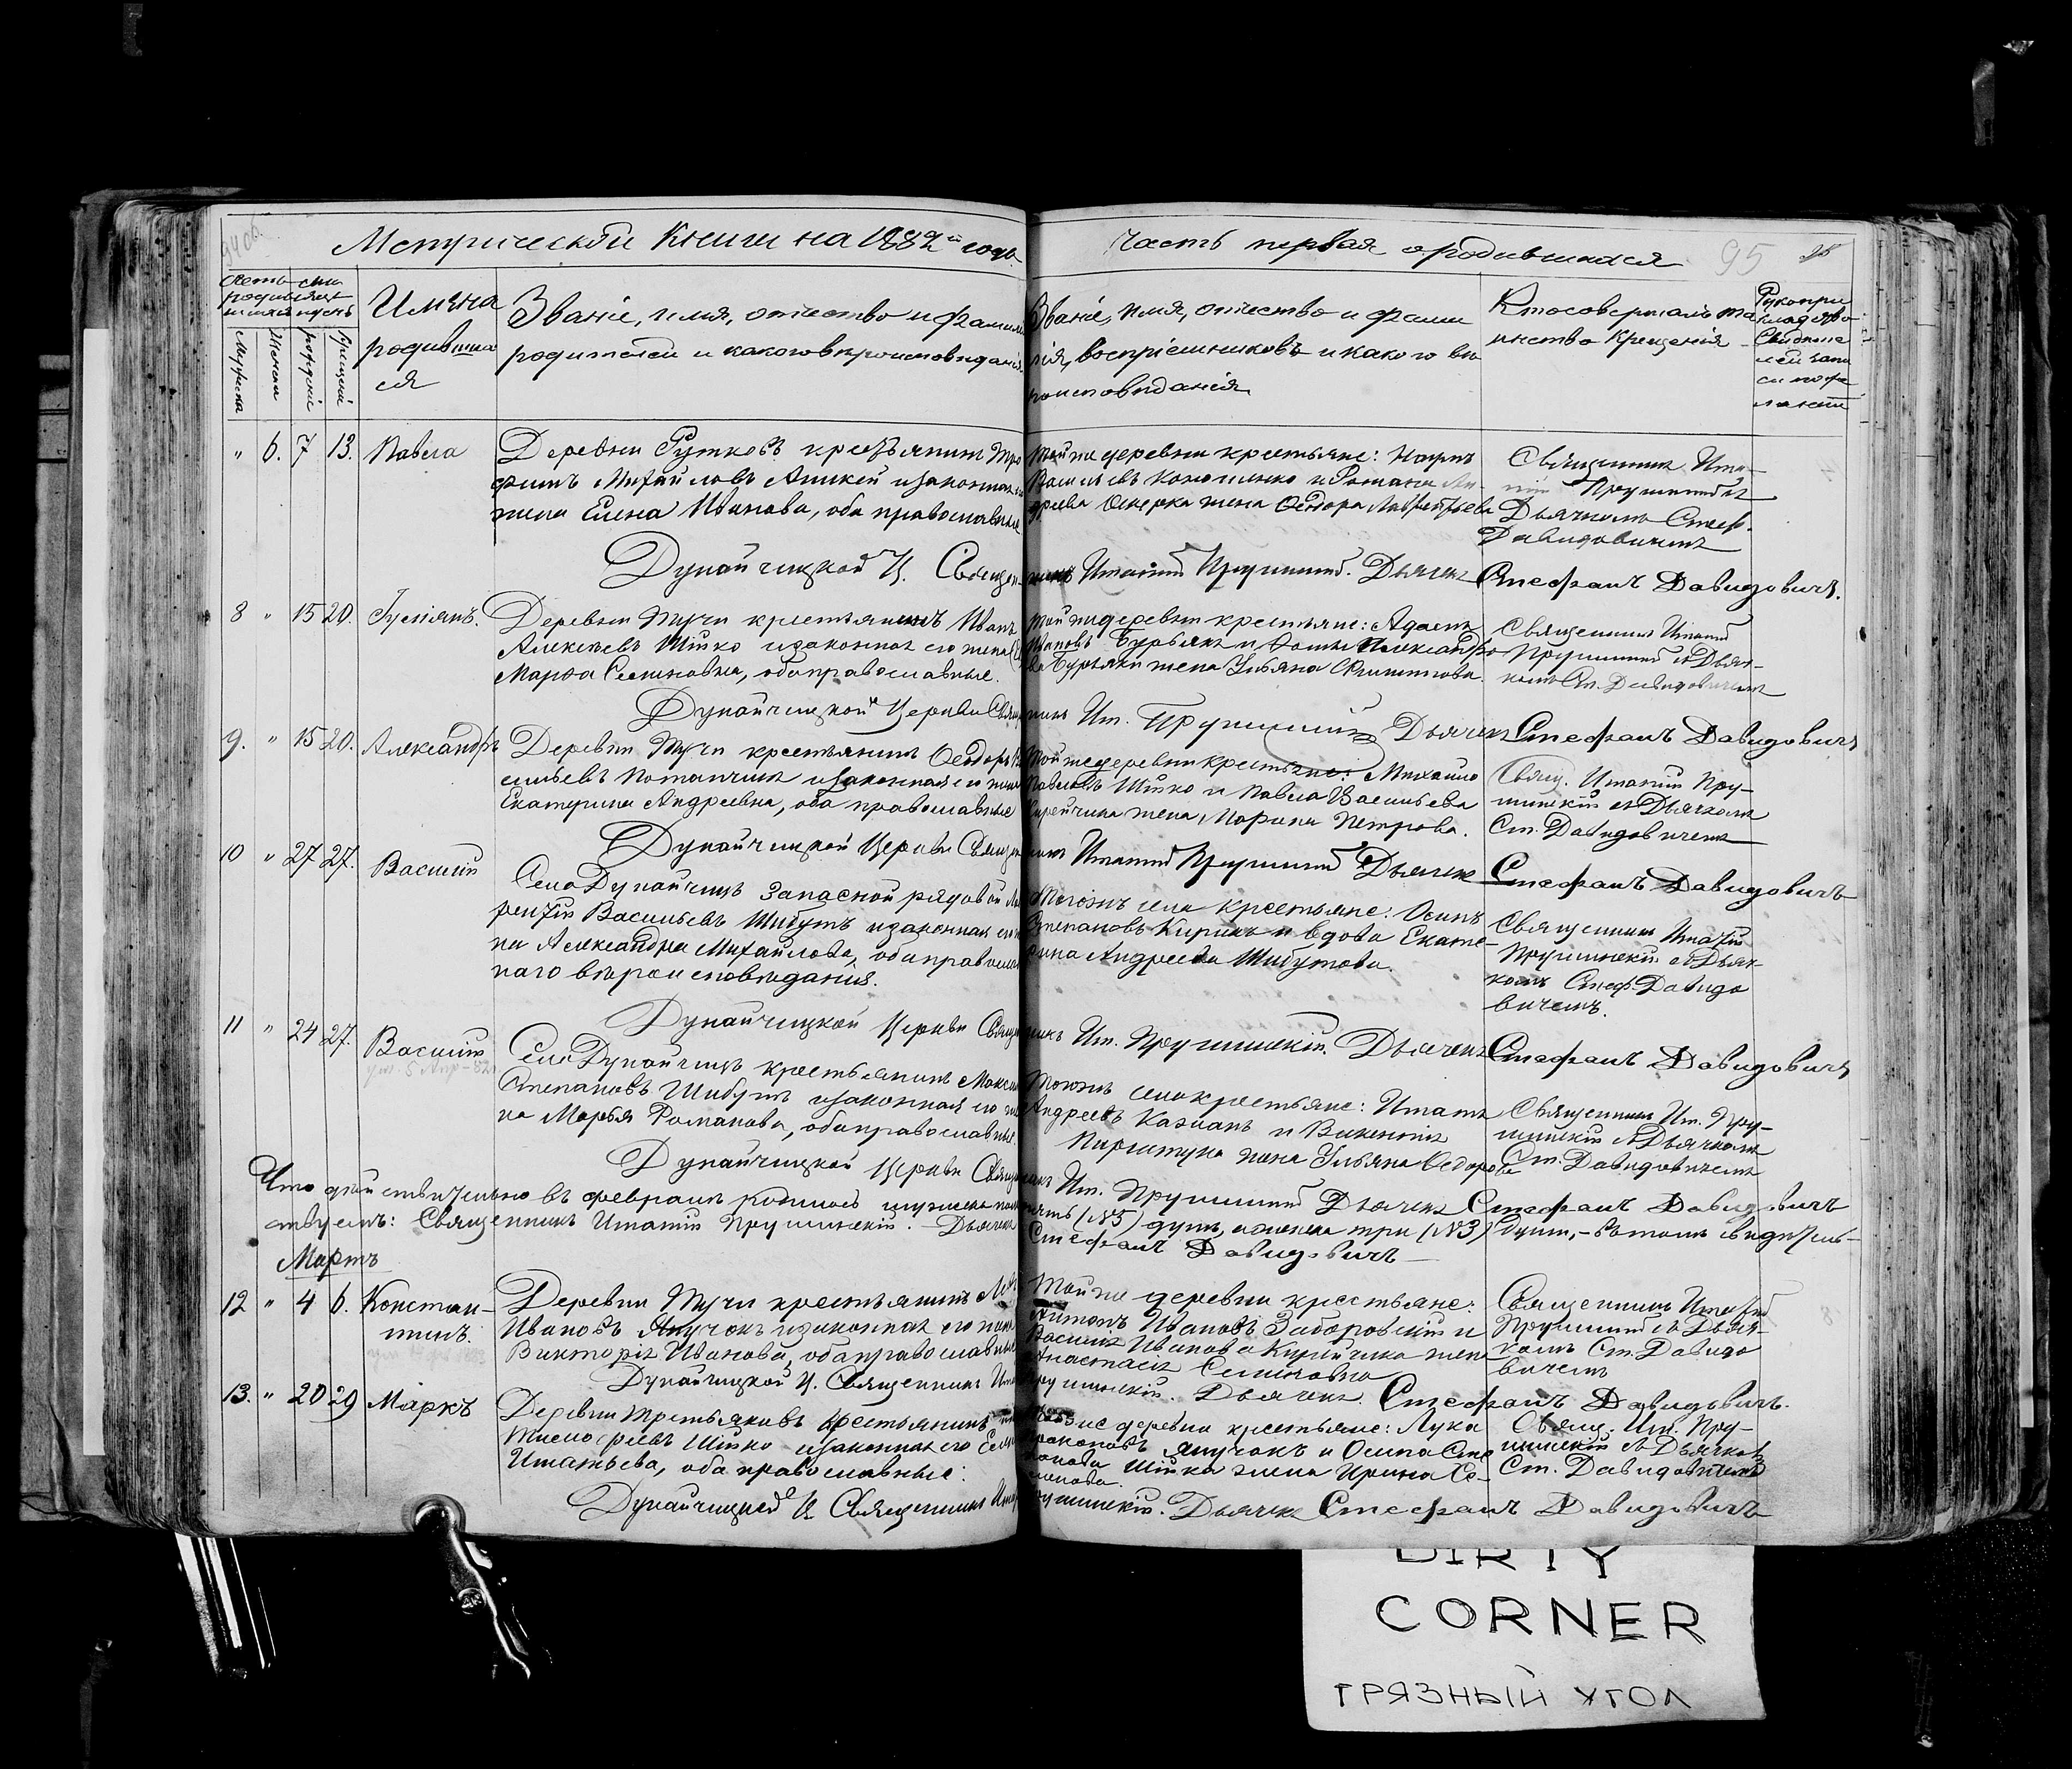 94 об.
Метрической Книги на 1882й года
Часть первая о родившихся
95
Счетъ родившихся
Мѣсяцъ и день
Мужеска
Женска
рожденія
крещенія
Имяна
родивша
ся
Званіе, имя, отчество и фамилія
родителей и какого вѣроисповѣданія.
Званіе, имя, отчество и фами
лія, воспріемниковъ и какого вѣ
роисповѣданія
Кто совершалъ та
инство Крещенія
Рукопри
кладство
Свидѣте
лей запи
си по же
ланію
" 6. 7 13. Павела
Деревни Рутковъ крестьянинъ Тро
фимъ Михайловъ и законная его
жена Елена Иванова, оба православные
Той же деревни крестьяне: Карпъ
Васильевъ и Романа Ан-
дреева жена Ѳеодора Лаврентьева
Священникъ Игна-
тій Прушинскій съ
Дьячкомъ Стеф.
Давидовичемъ
Дунайчицкой Ц. Священникъ Игнатій Прушинскій. Дьячекъ Стефанъ Давидовичъ.
8 " 15 20.
Деревни Тучи крестьянинъ Иванъ
Алексѣевъ Шітко и законная его жена
Марѳа Семиновна, оба православные.
Той же деревни крестьяне: Адамъ
Ивановъ Бурьякъ и Ѳомы Александро
ва Бурьяки жена Ульяна Филиппова.
Священникъ Игнатій
Прушинскій съ Дьяч-
комъ Ст. Давидовичемъ
Дунайчицкой Церкви Священникъ Иг. Прушинскій Дьячекъ Стефанъ Давидовичъ
9. " 15 20. Александръ
Деревни Тучи крестьянинъ Ѳеодоръ Ва
сильевъ Потапчикъ и законная его жена
Екатерина Андреевна, оба православные
Той же деревни крестьяне: Михаило
Павловъ Шітко и Павла Васильева
Курейчика жена, Марина Петрова.
Свящ. Игнатій Пру-
шинскій съ Дьячкомъ
Ст. Давидовичемъ
Дунайчицкой Церкви Священникъ Игнатій Прушинскій Дьячекъ Стефанъ Давидовичъ
10 " 27 27. Василій
Села Дунайчицъ запасной рядовой Лав
рентій Васильевъ Шибутъ и законная его же
на Александра Михайлова, оба православ
наго вѣроисповѣданія.
Тогожъ села крестьяне: Осипъ
Степановъ Кирикъ и вдова Екате-
рина Андреева Шибутова.
Священникъ Игнатій
Прушинскій съ Дьяч-
комъ Стеф. Давидо
вичемъ.
Дунайчицкой Церкви Священникъ Иг. Прушинскій. Дьячекъ Стефанъ Давидовичъ
11 " 24 27. Василій
ум. 5 Апр-82
Села Дунайчицъ крестьянинъ Максимъ
Степановъ Шибутъ и законная его же
на Марья Романова, оба православные.
Тогожъ села крестьяне: Игнатъ
Андреевъ Казианъ и Викентія
Пириштука жона Ульяна Ѳедорова
Священникъ Иг. Пру-
шинскій съ Дьячкомъ
Ст. Давидовичемъ
Дунайчицкой Церкви Священникъ Иг. Прушинскій Дьячекъ Стефанъ Давидовичъ
Что дѣйствительно въ февралѣ родилось мужеска пола пять (№5) душъ, а женска три (№3) души, - въ томъ свидѣтель-
ствуемъ: Священникъ Игнатій Прушинскій. Дьячекъ Стефанъ Давидовичъ
Мартъ
12 " 4 6. Констан-
тинъ.
Деревни Тучи крестьянинъ
Ивановъ Янучокъ и законная его жена
Викторія Иванова, оба православные
Той же деревни крестьяне:
Антонъ Ивановъ Заборовскій и
Василія Иванова Курійчика жена
Анастасія Семиновна
Священникъ Игнатій
Прушинскій съ Дьяч-
комъ Ст. Давидо
вичемъ
Дунайчицкой Ц. Священникъ Игн. Прушинскій. Дьячекъ Стефанъ Давидовичъ.
13. " 20 29 Маркъ
Деревни Третьяковъ крестьянинъ
Шітко и законная его
Игнатьева, оба православные:
деревни крестьяне: Лука
Прокоповъ Янучокъ и Осипа
Шітка жена Ирина
Свящ. Иг. Пру-
шинскій съ Дьячкомъ
Ст. Давидовичемъ
Дунайчицкой Ц. Священникъ Игн. Прушинскій. Дьячекъ Стефанъ Давидовичъ
DIRTY
CORNER
ГРЯЗНЫЙ УГОЛ